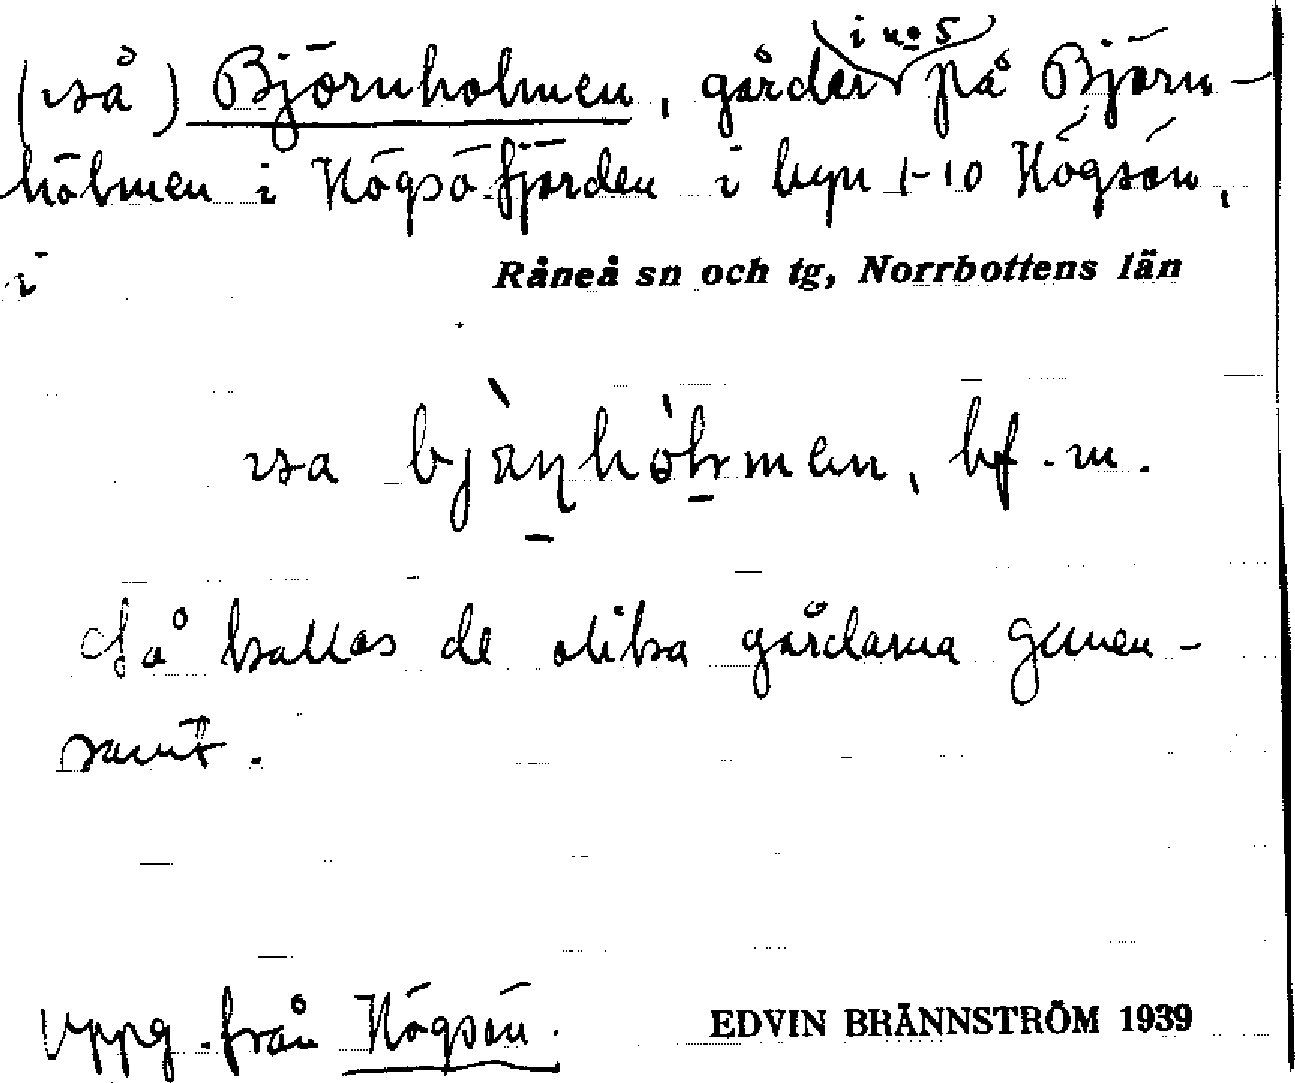 (på) Björnholmen, gårdar i no 5 på Björn-
holmen i Högsöfjärden i byn 1-10 Högsön,
i
Råneå sn och tg, Norrbottens län
bf. m.
Så kallas de olika gårdarna gemen-
samt.
Uppg. från Högsön.
EDVIN BRÄNNSTRÖM 1939